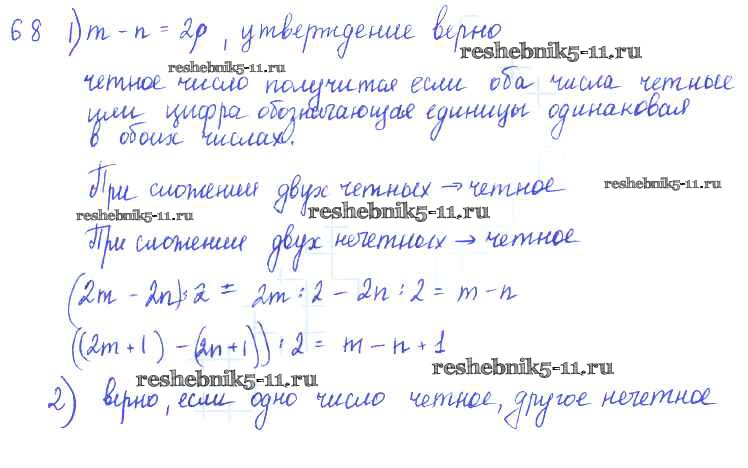 68 1) m - n = 2p, утверждение верно
reshebnik5-11.ru
reshebnik5-11.ru
четное число получится если оба числа четные
или цифра обозначающая единицы одинаковая
в обоих числах.
При сложении двух четных → четное
reshebnik5-11.ru
reshebnik5-11.ru
reshebnik5-11.ru
При сложении двух нечетных → четное
(2m - 2n) : 2 = 2m : 2 - 2n : 2 = m - n
((2m + 1) - (2n + 1)) : 2 = m - n + 1
reshebnik5-11.ru
reshebnik5-11.ru
2) верно, если одно число четное, другое нечетное